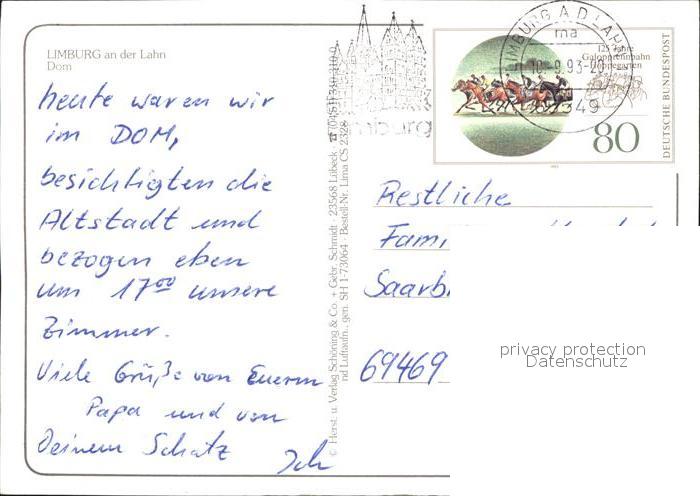 LIMBURG an der Lahn
Dom
heute waren wir
im DOM,
besichtigten die
Altstadt und
bezogen eben
um 17⁰⁰ unsere
Zimmer.
Viele Grüße von Euerm
Papa und von
Deinem Schatz
Ich
© Herst. u. Verlag Schöning & Co. + Gebr. Schmidt · 23568 Lübeck
Bestell-Nr. Lima CS 2328
nd Luftaufn., gen. SH 1-73064
limburg
LIMBURG A.D. LAHN
ma
9.93-20
125 Jahre
Galopprennbahn
Hoppegarten
80
DEUTSCHE BUNDESPOST
Restliche
Fami
Saarb
69469
privacy protection
Datenschutz